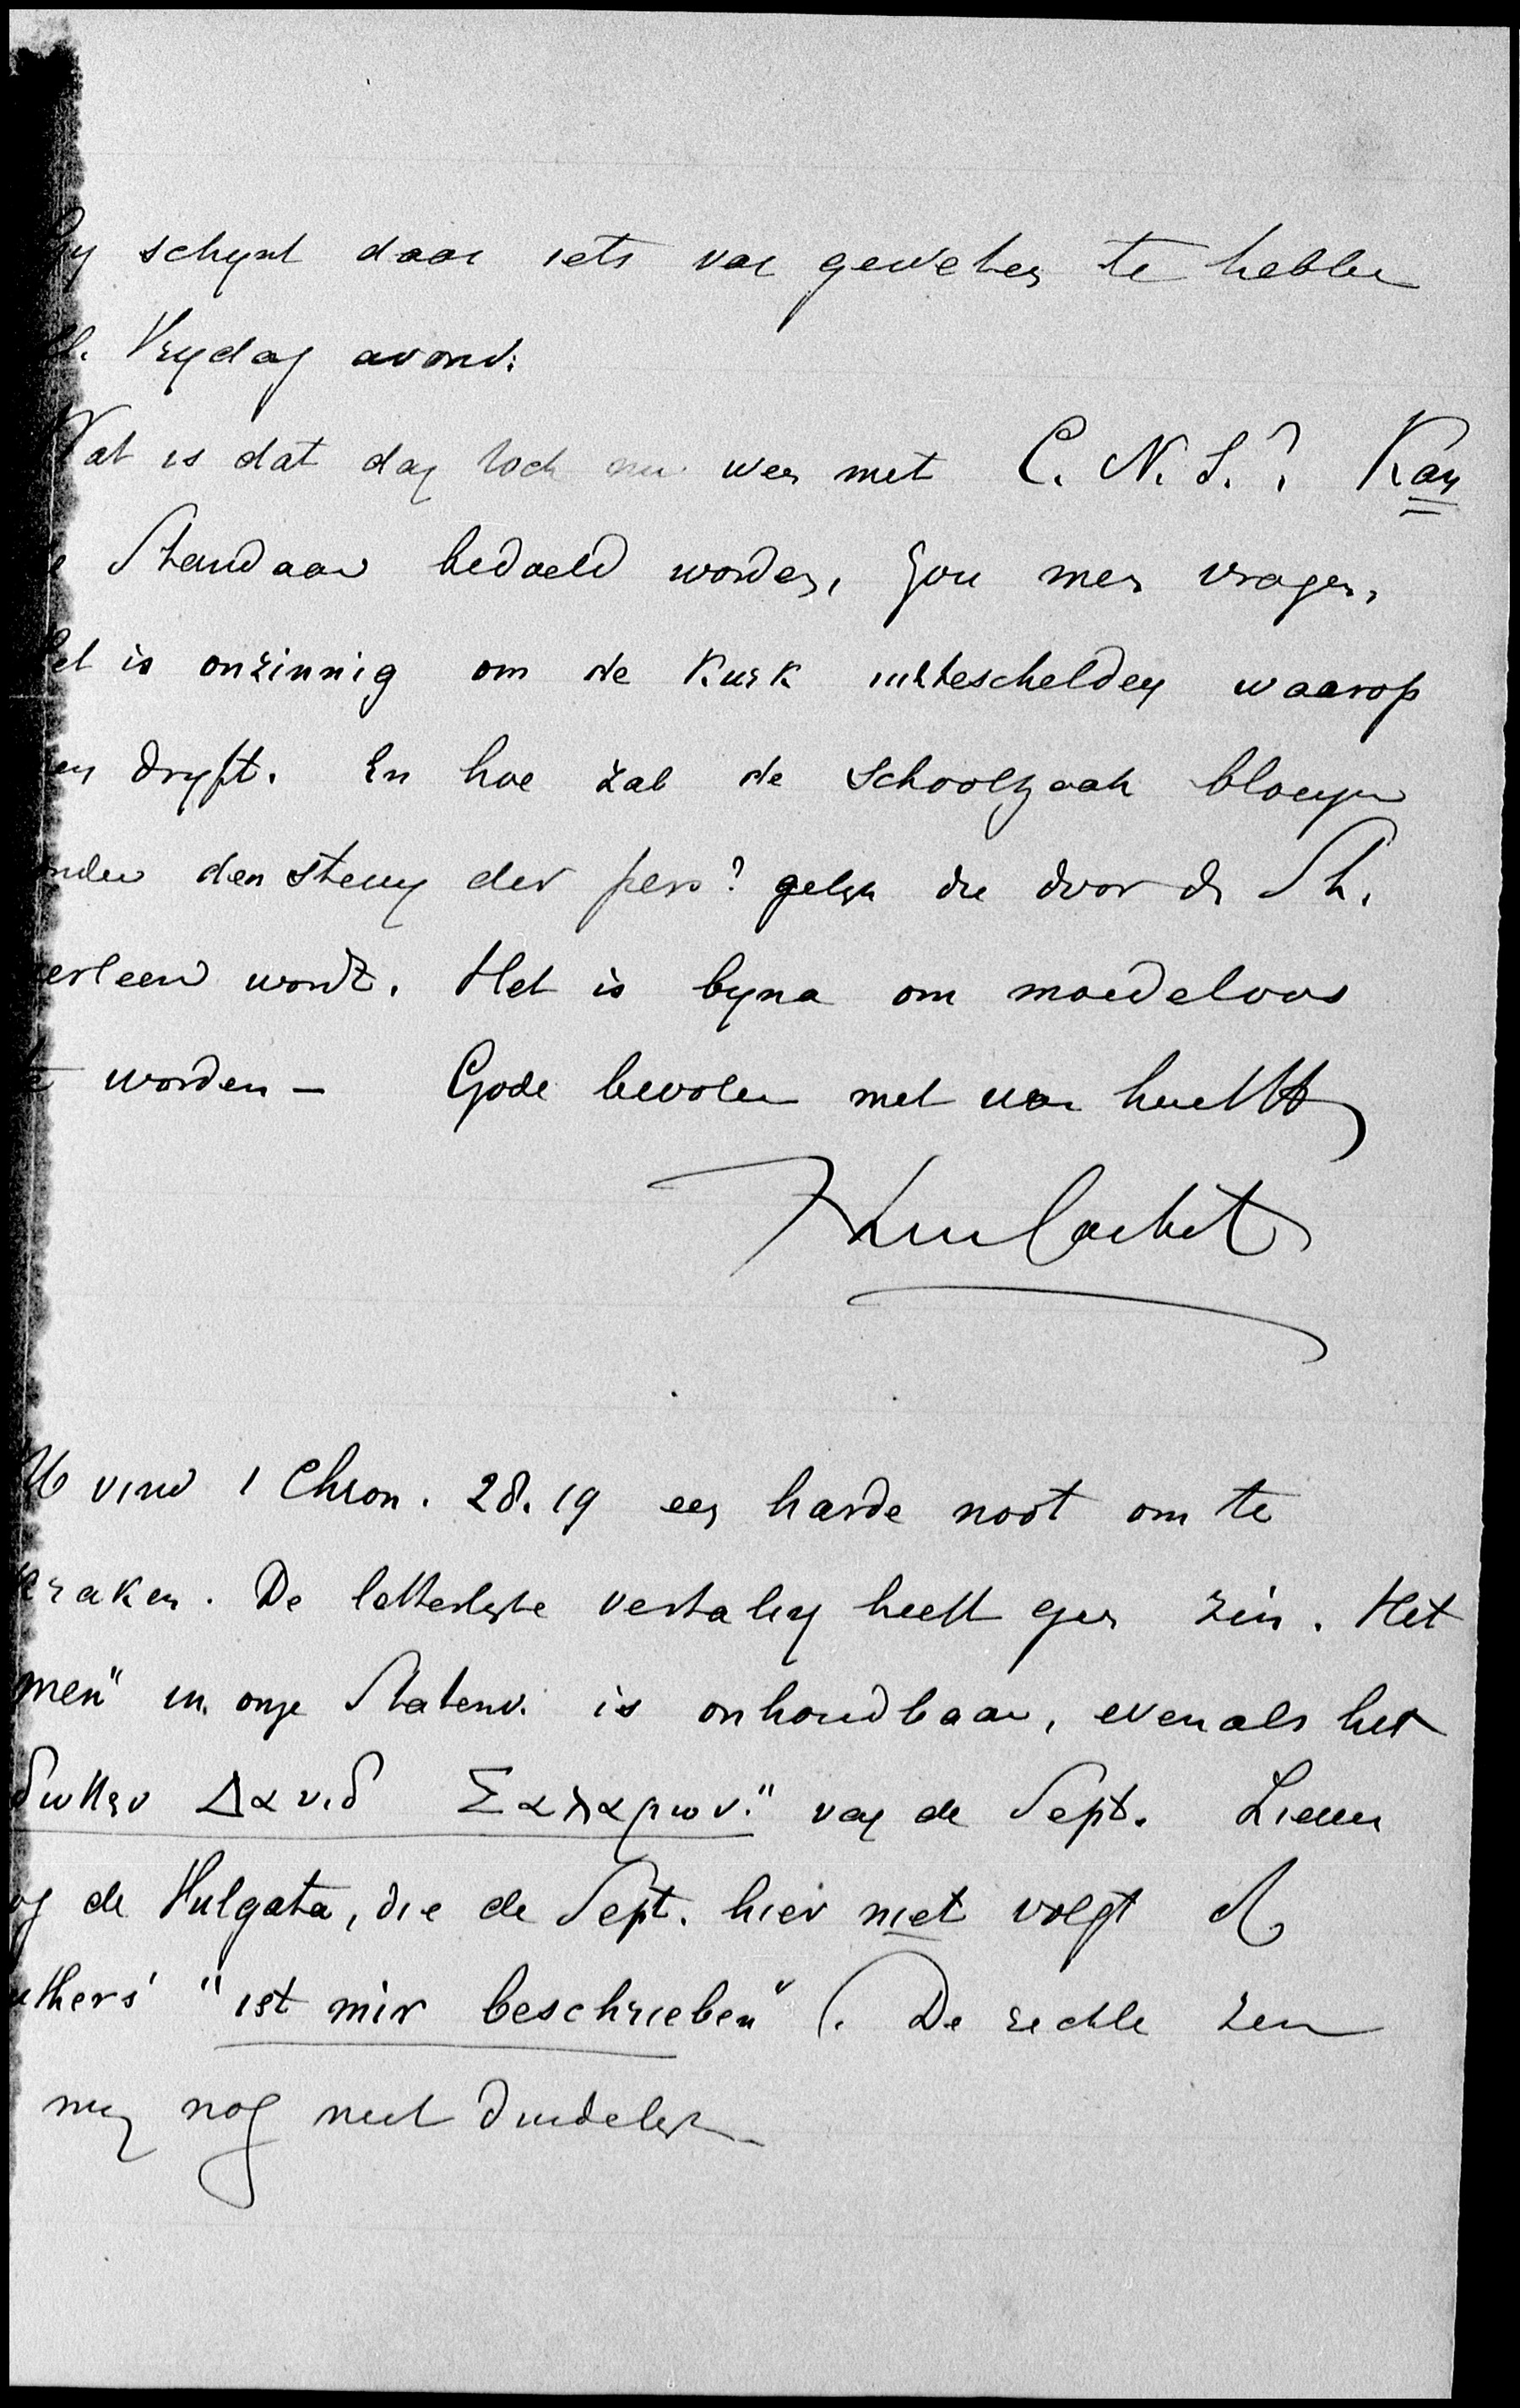 Hy schynt daar iets van geweten te hebben
ll. Vrydag avond.
Wat is dat dan toch nu weer met C. N. S.? Kan
de Standaard bedoeld worden, zou men vragen,
Het is onzinnig om de Kurk uitteschelden waarop
men dryft. En hoe zal de Schoolzaak bloeyen
onder den steun der pers? gelyk die door de St.
verleend wordt. Het is byna om moedeloos
te worden – Gode bevolen met
Ik vind 1 Chron. 28.19 een harde noot om te
kraken. De letterlyke vertaling heeft geen zin. Het
"men" in onze Statenv. is onhoudbaar, evenals het
Δαυιδ Σαλαμων." van de Sept. Liever
nog de Vulgata, die de Sept. hier niet volgt of
Luthers' "ist mir beschrieben" (. De rechte zin
my nog niet duidelyk